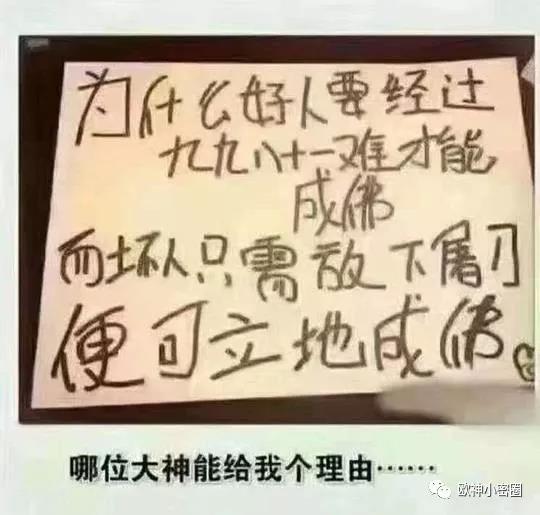 为什么好人要经过
九九八十一难才能
成佛
而坏人只需放下屠刀
便可立地成佛。
哪位大神能给我个理由……
欧神小密圈